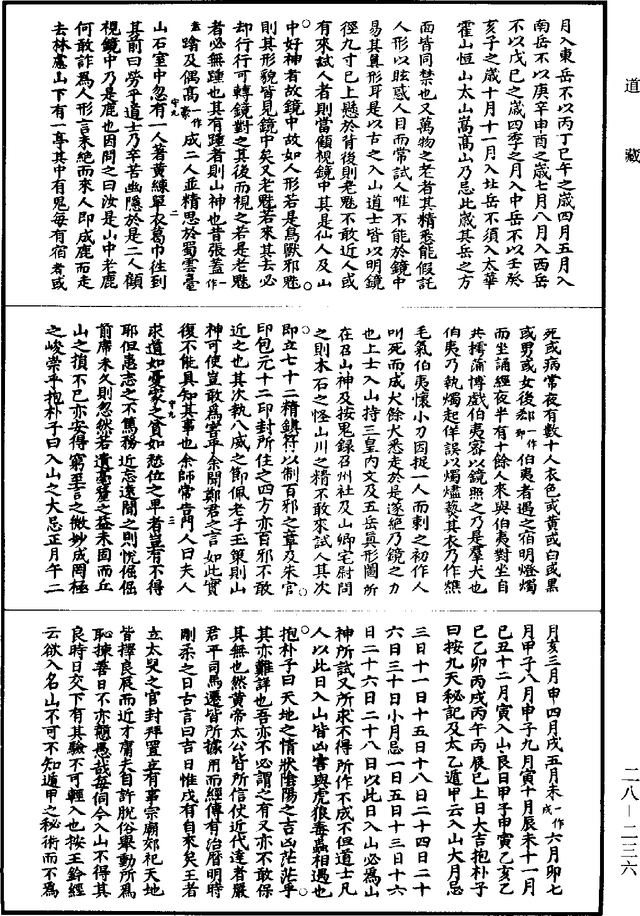 道藏
月入東岳不以丙丁巳午之歲四月五月入
南岳不以庚辛申酉之歲七月八月入西岳
不以戊巳之歲四季之月入中岳不以壬癸
亥子之歲十月十一月入北岳不須入太華
霍山恒山太山嵩高山乃忌此歲其岳之方
面皆同禁也又萬物之老者其精悉能假託
人形以眩惑人目而常試人唯不能於鏡中
易其真形耳是以古之入山道士皆以明鏡
徑九寸已上懸於背後則老魅不敢近人或
有來試人者則當顧視鏡中其是仙人及山
中好神者故鏡中故如人形若是鳥獸邪魅
則其形貌皆見鏡中矣又老魅若來其去必
却行行可轉鏡對之其後而視之若是老魅
者必無踵也其有踵者則山神也昔張蓋一作
蹹及偶高一作豪成二人並精思於蜀雲臺
山石室中忽有一人著黃練單衣葛巾往到
其前曰勞乎道士乃辛苦幽隱於是二人顧
視鏡中乃是鹿也因問之曰汝是山中老鹿
何敢詐為人形言未絕而來人即成鹿而走
去林慮山下有一亭其中有鬼每有宿者或
死或病常夜有數十人衣色或黃或白或黑
或男或女後郄一作郅伯夷者遇之宿明燈燭
而坐誦經夜半有十餘人來與伯夷對坐自
共摴蒲博戲伯夷密以鏡照之乃是羣犬也
伯夷乃執燭起佯誤以燭燼爇其衣乃作燋
毛氣伯夷懷小刀因捉一人而刺之初作人
叫死而成犬餘犬悉走於是遂絕乃鏡之力
也上士入山持三皇內文及五岳真形圖所
在召山神及按鬼録召州社及山卿宅尉問
之則木石之怪山川之精不敢來試人其次
即立七十二精鎮符以制百邪之章及朱官
印包元十二印封所住之四方亦百邪不敢
近之也其次執八威之節佩老子玉策則山
神可使豈敢為害乎余聞鄭君之言如此實
復不能具知其事也余師常告門人曰夫人
求道如憂家之貧如愁位之卑者豈有不得
耶但患志之不篤務近忘遠聞之則悅倔倔
前席未久則忽然若遺毫釐之益未固而丘
山之損不已亦安得窮至言之微妙成罔極
之峻崇乎抱朴子曰入山之大忌正月午二
月亥三月申四月戌五月未一作戌六月卯七
月甲子八月申子九月寅十月辰未十一月
已丑十二月寅入山良日甲子甲寅乙亥乙
巳乙卯丙戌丙午丙辰已上日大吉抱朴子
曰按九天秘記及太乙遁甲云入山大月忌
三日十一日十五日十八日二十四日二十
六日三十日小月忌一日五日十三日十六
日二十六日二十八日以此日入山必為山
神所試又所求不得所作不成不但道士凡
人以此日入山皆凶害與虎狼毒蟲相遇也
抱朴子曰天地之情狀陰陽之吉凶茫茫乎
其亦難詳也吾亦不必謂之有又亦不敢保
其無也然黃帝太公皆所信仗近代達者嚴
君平司馬遷皆所據用而經傳有治曆明時
剛柔之日古言曰吉日惟戊有自來矣王者
立太史之官封拜置立有事宗廟郊祀天地
皆擇良辰而近才庸夫自許脫俗舉動所為
恥揀善日不亦戇愚哉每伺今入山不得其
良時日交下有其驗不可輕入也按玉鈐經
云欲入名山不可不知遁甲之秘術而不為
二八—二三六